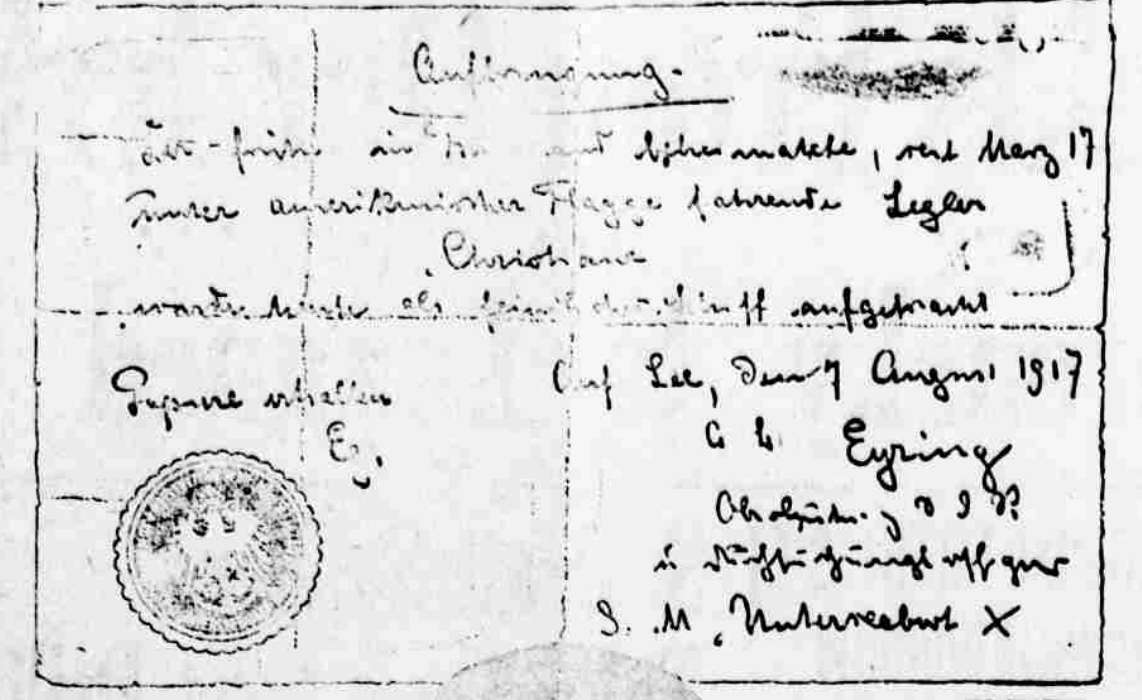 Aufbringung.
Der früher in und beheimatete, seit März 17
unter amerikanischer Flagge fahrende Segler
Christiane
wurde heute als feindliches Schiff aufgebracht
Papiere erhalten
E.
Auf See, den 7 August 1917
Eyring
u Durchsuchungsoffizier
S. M. Unterseeboot X